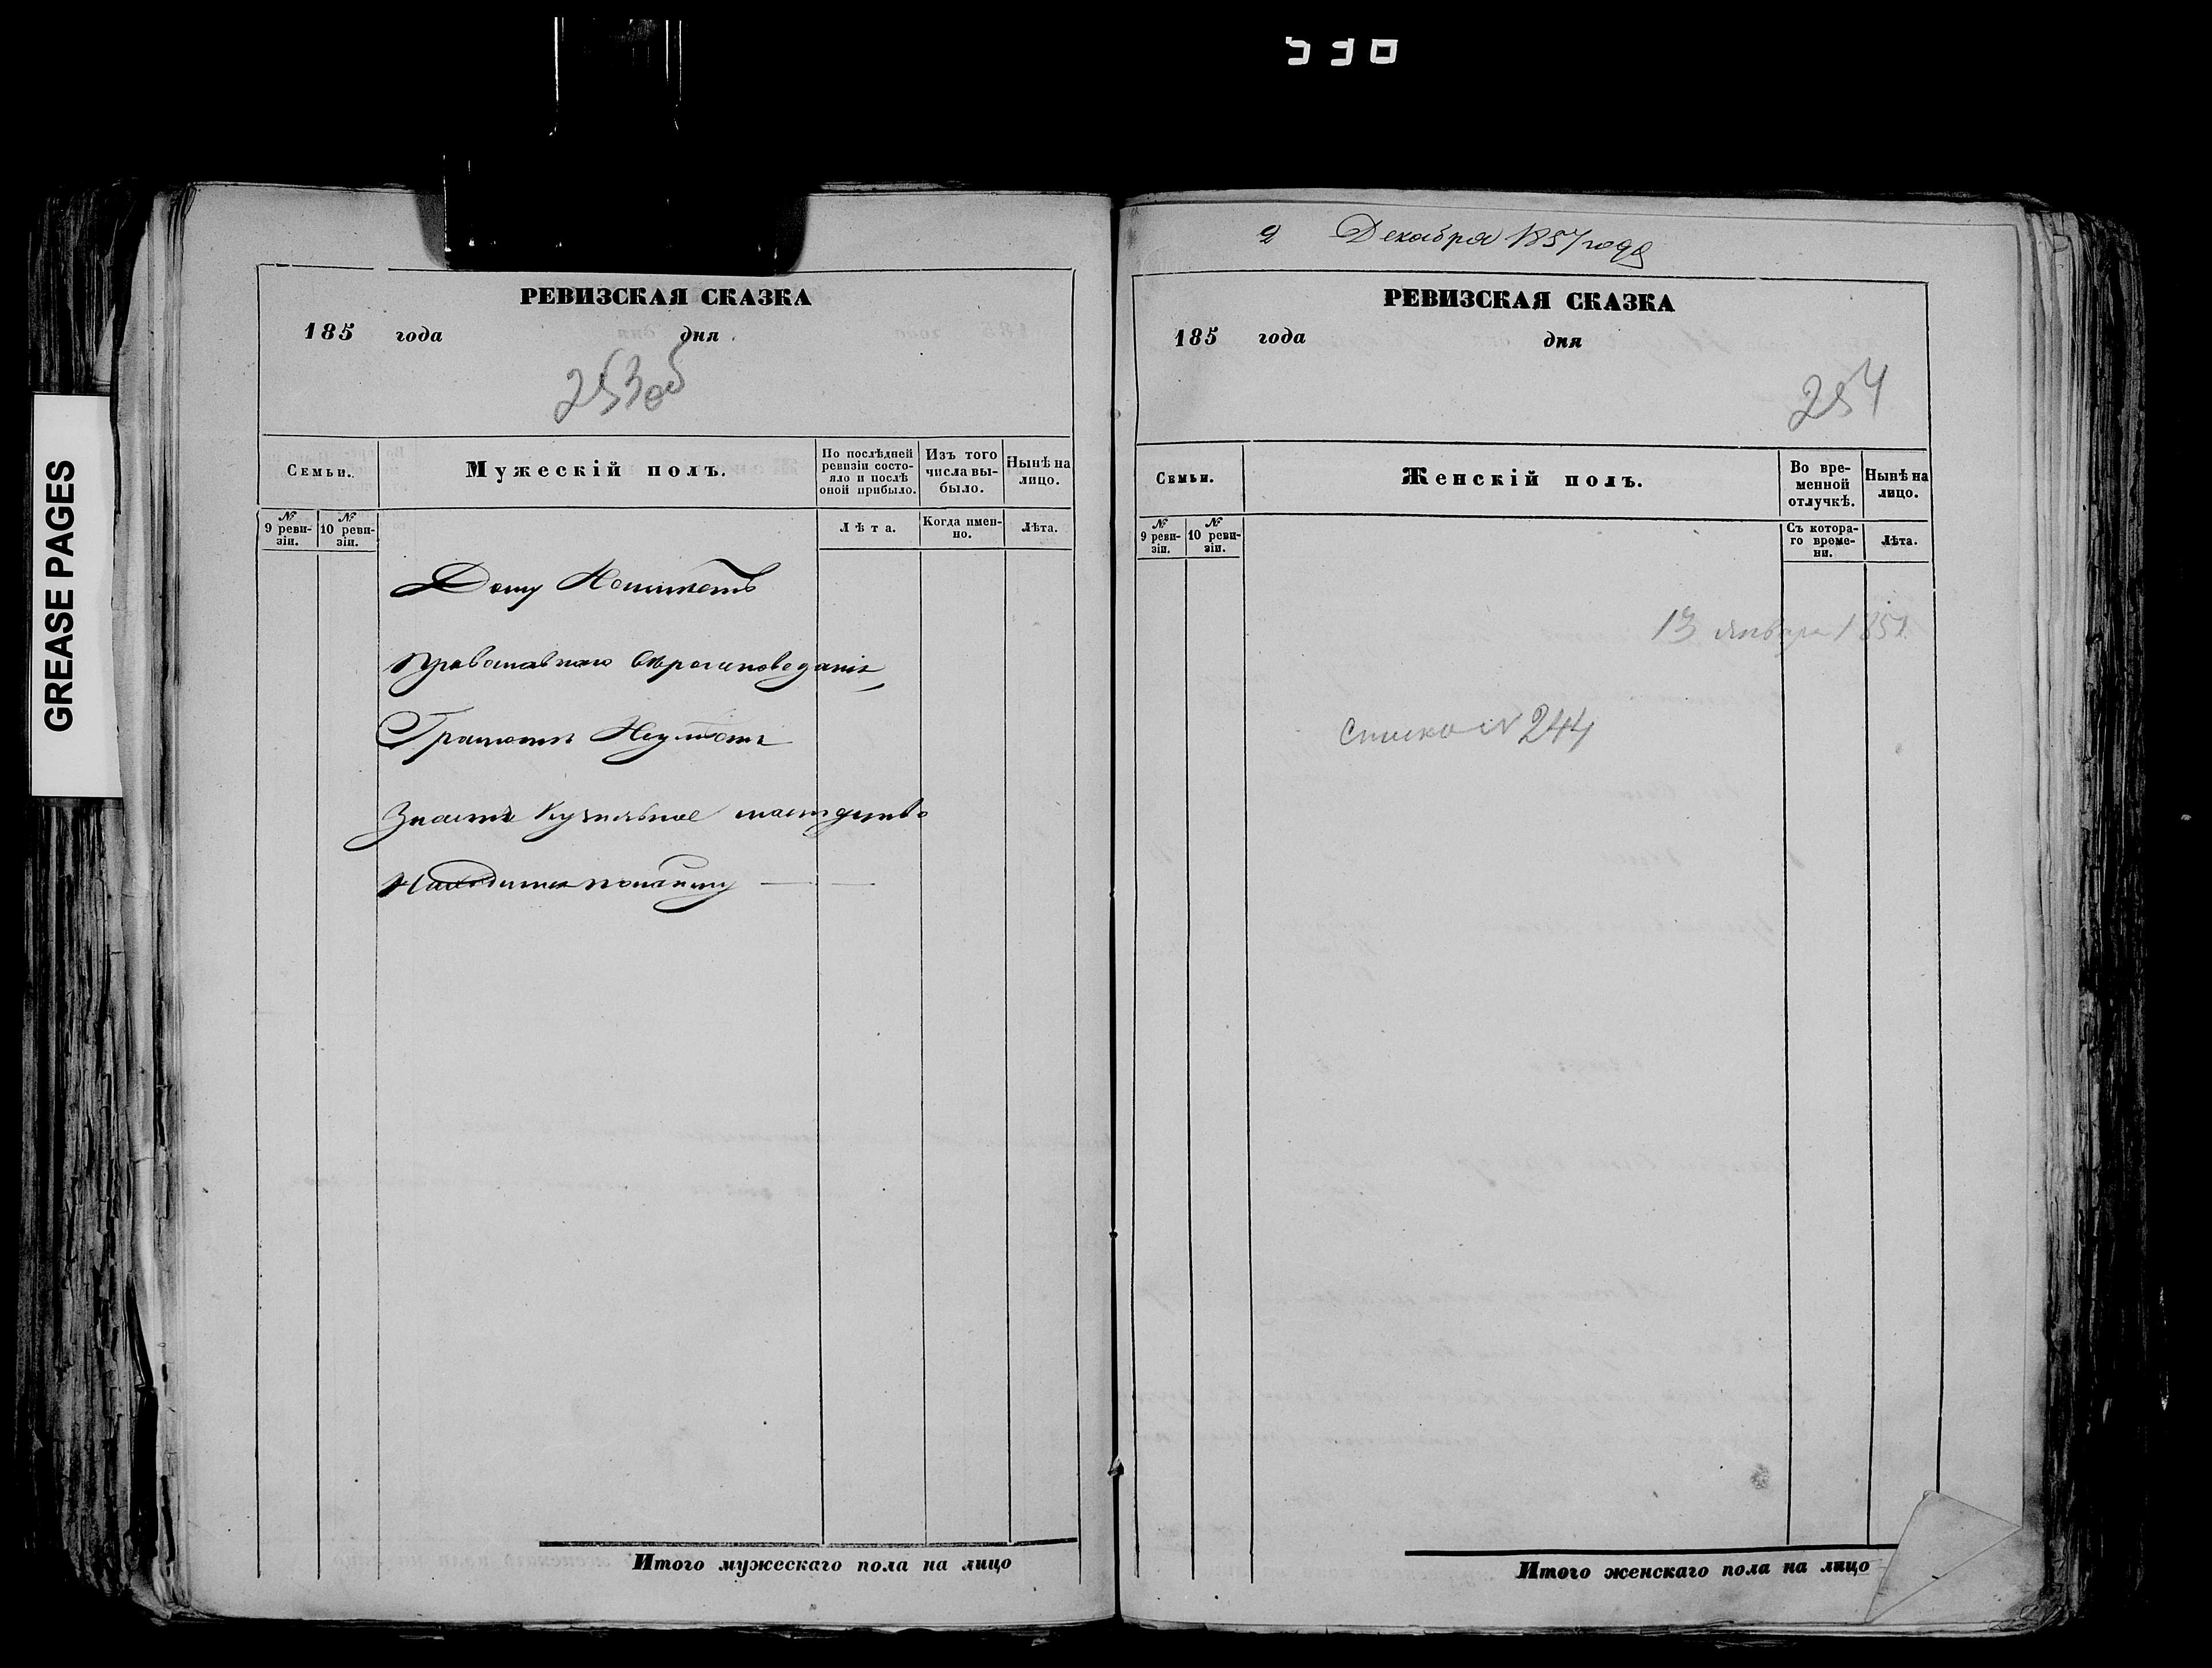 GREASE PAGES
РЕВИЗСКАЯ СКАЗКА
185 года дня
253об
Семьи.
Мужескій полъ.
По послѣдней ревизіи состо-
яло и послѣ
оной прибыло.
Изъ того
числа вы-
было.
Нынѣ на
лицо.
№
9 реви-
зіи.
№
10 реви-
зіи.
Лѣта.
Когда имен-
но.
Лѣта.
Дому Неимѣетъ
Православнаго Вѣроисповеданія
Грамотѣ Неумѣетъ
Знаетъ Кузнечное мастерство
Находится
Итого мужескаго пола на лицо
2 Декабря 1857 года
РЕВИЗСКАЯ СКАЗКА
185 года дня
254
Семьи.
Женскій полъ.
Во вре-
менной
отлучкѣ.
Нынѣ на
лицо.
№
9 реви-
зіи.
№
10 реви-
зіи.
Съ котора-
го време-
ни.
Лѣта.
13 января
№ 244
Итого женскаго пола на лицо